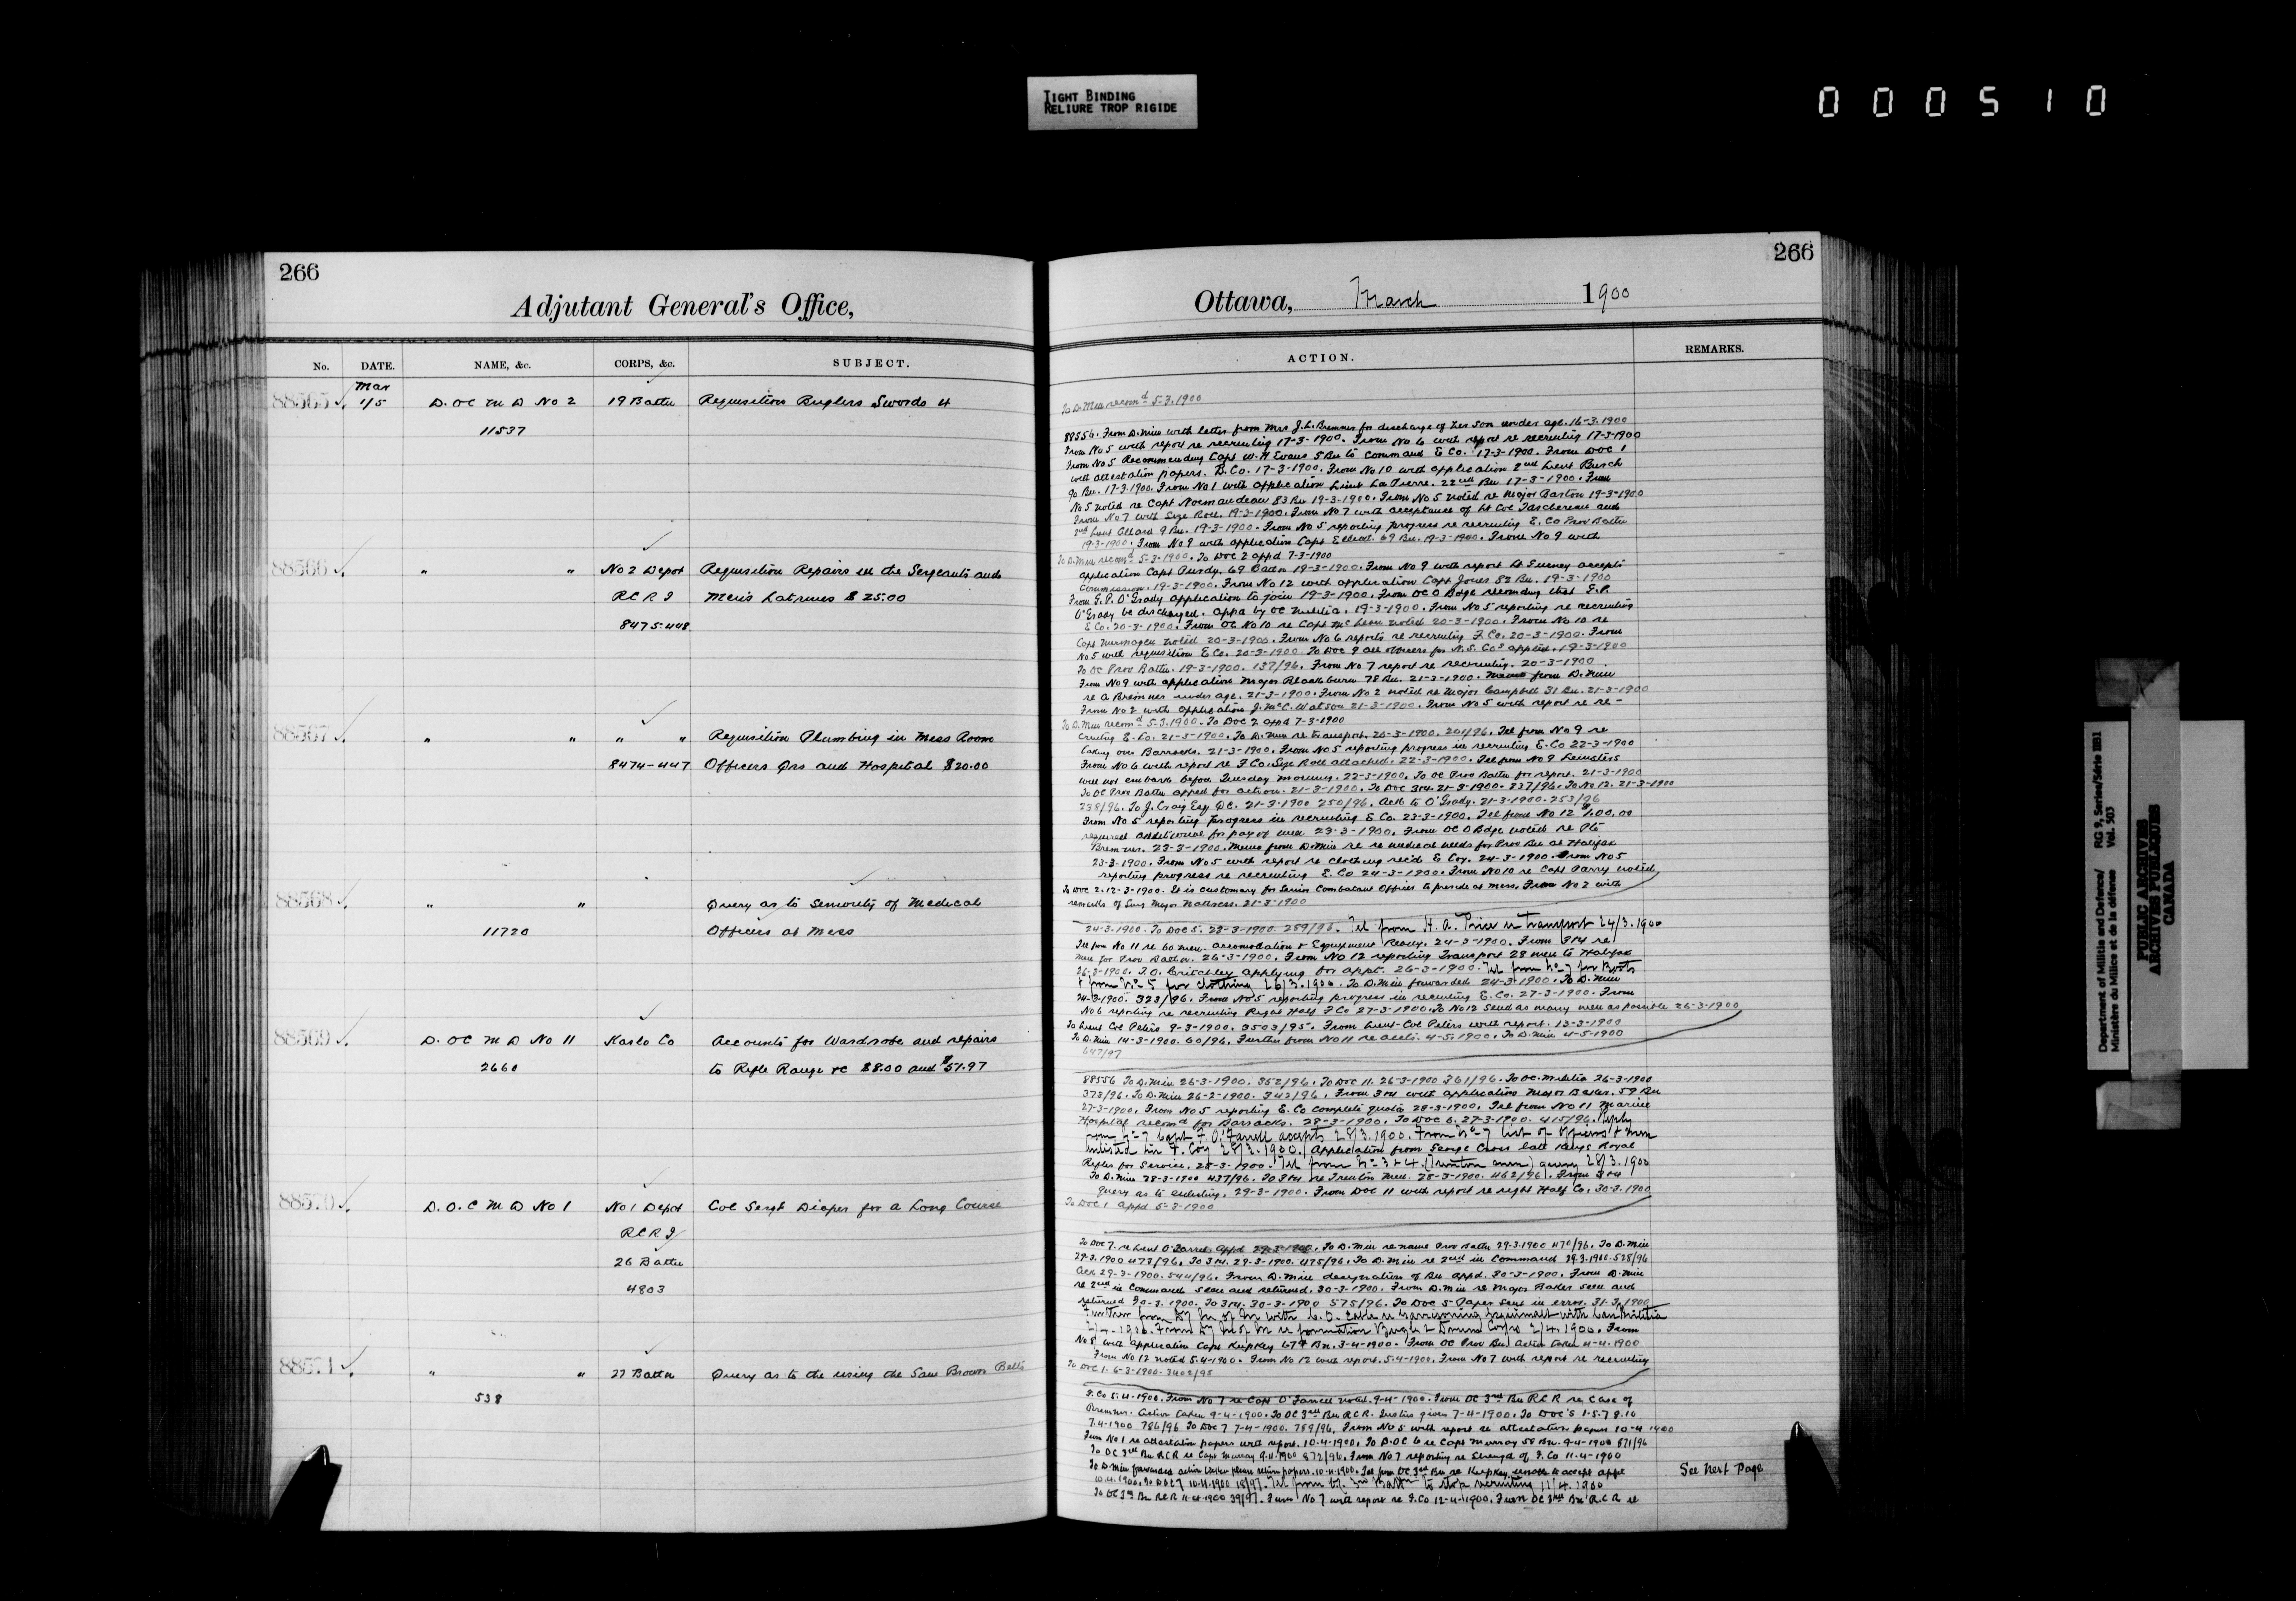 TIGHT BINDING
RELIURE TROP RIGIDE
000510
266
Adjutant General's Office,
No. DATE. NAME, &c. CORPS, &c. SUBJECT.
Mar
88565 1/5 D. OC M D No 2 19 Battn Requisition Buglers Swords 4
11537
88566 " " No 2 Depot Requisition Repairs in the Sergeants and
RCRI Men's Latrines $25.00
8475-448
88567 " " " " Requisition Plumbing in Mess Room
8474-447 Officers Qrs and Hospital $20.00
88568 " " Query as to Seniority of Medical
11720 Officers at Mess
88569 D. OC M D No 11 Kaslo Co Accounts for Wardrobe and repairs
2660 to Rifle Range &c $8.00 and $51.97
88570 D. O. C M D No 1 No 1 Depot Col Sergt Diaper for a Long Course
RCRI
26 Battn
4803
88571 " " 27 Battn Query as to the using the Sam Brown Belts
538
266
Ottawa, March 1900
ACTION. REMARKS.
To D. Min recomd 5-3-1900
88556. From D. Min with letter from Mrs J.L. Bremner for discharge of her son under age. 16-3-1900
From No 5 with report re recruiting 17-3-1900. From No 6 with report re recruiting 17-3-1900
From No 5 Recommending Capt W.H Evans 5 Bn to Command E Co. 17-3-1900. From DOC 1
with attestation papers. B. Co. 17-3-1900. From No 10 with application 2nd Lieut Burch
90 Bn. 17-3-1900. From No 1 with application Lieut La Pierre. 22nd Bn 17-3-1900. From
No 5 noted re Capt Normandeau 83 Bn 19-3-1900. From No 5 noted re Major Barton 19-3-1900
From No 7 with Size Roll. 19-3-1900. From No 7 with acceptance of Lt Col Taschereau and
2nd Lieut Allard 9 Bn. 19-3-1900. From No 5 reporting progress re recruiting E. Co Prov Battn
19-3-1900. From No 9 with application Capt Elliott. 69 Bn. 19-3-1900. From No 9 with
To D. Min recomd 5-3-1900. To DOC 2 appd 7-3-1900
application Capt Purdy. 69 Battn 19-3-1900. From No 9 with report Lt accepts
Commission. 19-3-1900. From No 12 with application Capt Jones 82 Bn. 19-3-1900
From G.P. O'Grady application to join 19-3-1900. From OC O Bdge recomding that G.P.
O'Grady be discharged. appd by OC Militia. 19-3-1900. From No 5 reporting re recruiting
E Co. 20-3-1900. From OC No 10 re Capt McLean noted 20-3-1900. From No 10 re
Capt noted 20-3-1900. From No 6 reports re recruiting F. Co. 20-3-1900. From
No 5 with requisition E Co. 20-3-1900. To DOC 9 all officers for N.S. Cos applied. 19-3-1900
To OC Prov Battn. 19-3-1900. 137/96. From No 7 report re recruiting. 20-3-1900.
From No 9 with application Major Blackburn 78 Bn. 21-3-1900. Memo from D. Min
re A Bremner under age. 21-3-1900. From No 2 noted re Major Campbell 31 Bn. 21-3-1900
From No 2 with application J. McC. Watson 21-3-1900. From No 5 with report re re-
To D. Min recomd 5-3-1900. To DOC 2 appd 7-3-1900
cruiting E. Co. 21-3-1900. To D. Min re transport. 20-3-1900. 201/96. Tel from No 9 re
taking over Barracks. 21-3-1900. From No 5 reporting progress in recruiting E. Co 22-3-1900
From No 6 with report re F Co. Size Roll attached. 22-3-1900. Tel from No 9 Leinsters
will not embark before Tuesday morning. 22-3-1900. To OC Prov Battn for report. 21-3-1900
To OC Prov Battn appd for action. 21-3-1900. To DOC 3&4. 21-3-1900. 237/96. To No 12. 21-3-1900
238/96. To J. Craig Esq QC. 21-3-1900 250/96. Ack to O'Grady. 21-3-1900. 253/96
From No 5 reporting progress in recruiting E Co. 23-3-1900. Tel from No 12 $100.00
required additional for pay of men 23-3-1900. From OC O Bdge noted re Pte
Bremner. 23-3-1900. Memo from D. Min re medical needs for Prov Bn at Halifax
23-3-1900. From No 5 with report re clothing recd E Coy. 24-3-1900. From No 5
reporting progress re recruiting E. Co 24-3-1900. From No 10 re Capt Parry noted
To DOC 2. 12-3-1900. It is customary for Senior Combatant Officer to preside at mess. From No 2 with
remarks of Surg Major Nattress. 21-3-1900
24-3-1900. To DOC 5. 23-3-1900. 259/96. Tel from H. A. Price re transport 24/3.1900
Tel from No 11 re 60 men. accomodation & Equipment Ready. 24-3-1900. From 3&4 re
men for Prov Battn. 26-3-1900. From No 12 reporting Transport 28 men to Halifax
26-3-1900. J.O. Critchley applying for appt. 26-3-1900. Tel from No 7 for Boots
& from No 5 for clothing 26/3.1900. To D. Min forwarded 24-3-1900. To D. Min
24-3-1900. 323/96. From No 5 reporting progress in recruiting E. Co. 27-3-1900. From
No 6 reporting re recruiting Right Half F Co 27-3-1900. To No 12 Send as many men as possible 26-3-1900
To Lieut Col Peters 9-3-1900. 3503/95. From Lieut-Col Peters with report. 13-3-1900
To D. Min 14-3-1900. 60/96. Further from No 11 re accts. 4-5-1900. To D. Min 4-5-1900
647/97
88556 To D. Min 26-3-1900. 352/96. To DOC 11. 26-3-1900 361/96. To OC. Militia 26-3-1900
373/96. To D. Min 26-2-1900. 342/96. From 3&4 with application Major Baker. 59 Bn
27-3-1900. From No 5 reporting E. Co complete quota 28-3-1900. Tel from No 11 Marine
Hospital recomd for Barracks. 28-3-1900. To DOC 6. 27-3-1900. 415/96. Reply
from No 7 Capt F. O'Farrell accepts 28/3.1900. From No 7 list of Officers & men
enlisted in F. Coy 28/3.1900. Application from George Cross late Kings Royal
Rifles for Service. 28-3-1900. Tel from No 3 & 4. (Trenton men) query 28/3.1900
To D. Min 28-3-1900 437/96. To 3&4 re Trenton Men. 28-3-1900. 462/96. From 3&4
query as to enlisting. 29-3-1900. From DOC 11 with report re right Half Co. 30-3-1900
To DOC 1 appd 5-3-1900
To DOC 7. re Lieut O'Farrell appd 29-3-1900. To D. Min re name Prov Battn 29-3-1900 470/96. To D. Min
29-3-1900 473/96. To 3&4. 29-3-1900. 475/96. To D. Min re 2nd in Command 29-3-1900. 528/96
Ack 29-3-1900. 544/96. From D. Min designation of Bn appd. 30-3-1900. From D. Min
re 2nd in Command seen and returned. 30-3-1900. From D. Min re Major Baker seen and
returned 30-3-1900. To 3&4. 30-3-1900 575/96. To DOC 5 Paper sent in error. 31-3-1900
Further from Dy Mr of Mn with C. O. re Garrisoning Esquimalt with Can Militia
2/4-1900. From Dy Mr of Mn re formation Bugle & Drum Corps 2/4.1900. From
No 8 with application Capt KirpKey 67th Bn. 3-4-1900. From OC Prov Bn Action taken 4-4-1900
From No 12 noted 5-4-1900. From No 12 with report. 5-4-1900. From No 7 with report re recruiting
To DOC 1. 6-3-1900. 3402/95
F. Co 5-4-1900. From No 7 re Capt O'Farrell noted. 9-4-1900. From OC 3rd Bn RCR re Case of
Bremner. Action taken 9-4-1900. To OC 3rd Bn RCR. given 7-4-1900. To DOC's 1.5.7 8.10
7-4-1900 786/96 To DOC 7 7-4-1900. 789/96. From No 5 with report re attestation papers 10-4-1900
From No 1 re attestation papers with report. 10-4-1900. To D.OC 6 re Capt Murray 58 Bn. 9-4-1900 871/96
To OC 3rd Bn RCR re Capt Murray 9-4-1900 872/96. From No 7 reporting re Strength of F. Co 11-4-1900
To D. Min forwarded action taken please return papers. 10-4-1900. Tel from OC 3rd Bn re unable to accept appt
10-4-1900. To DOC 7 10-4-1900 18/97. Tel from 3rd Battn to stop recruiting 11/4.1900
To OC 3rd Bn RCR 11-4-1900 39/97. From No 7 with report re F. Co 12-4-1900. From OC 3rd Bn R.C.R re
See Next Page
Department of Militia and Defence/ RG 9, Series/Série II B1
Ministère du Milice et de la défense Vol. 503
PUBLIC ARCHIVES
ARCHIVES PUBLIQUES
CANADA